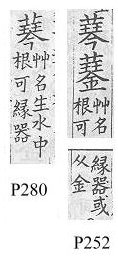 艸名生水中
根可緣器
P280
艸名
根可
緣器或
从金
P252